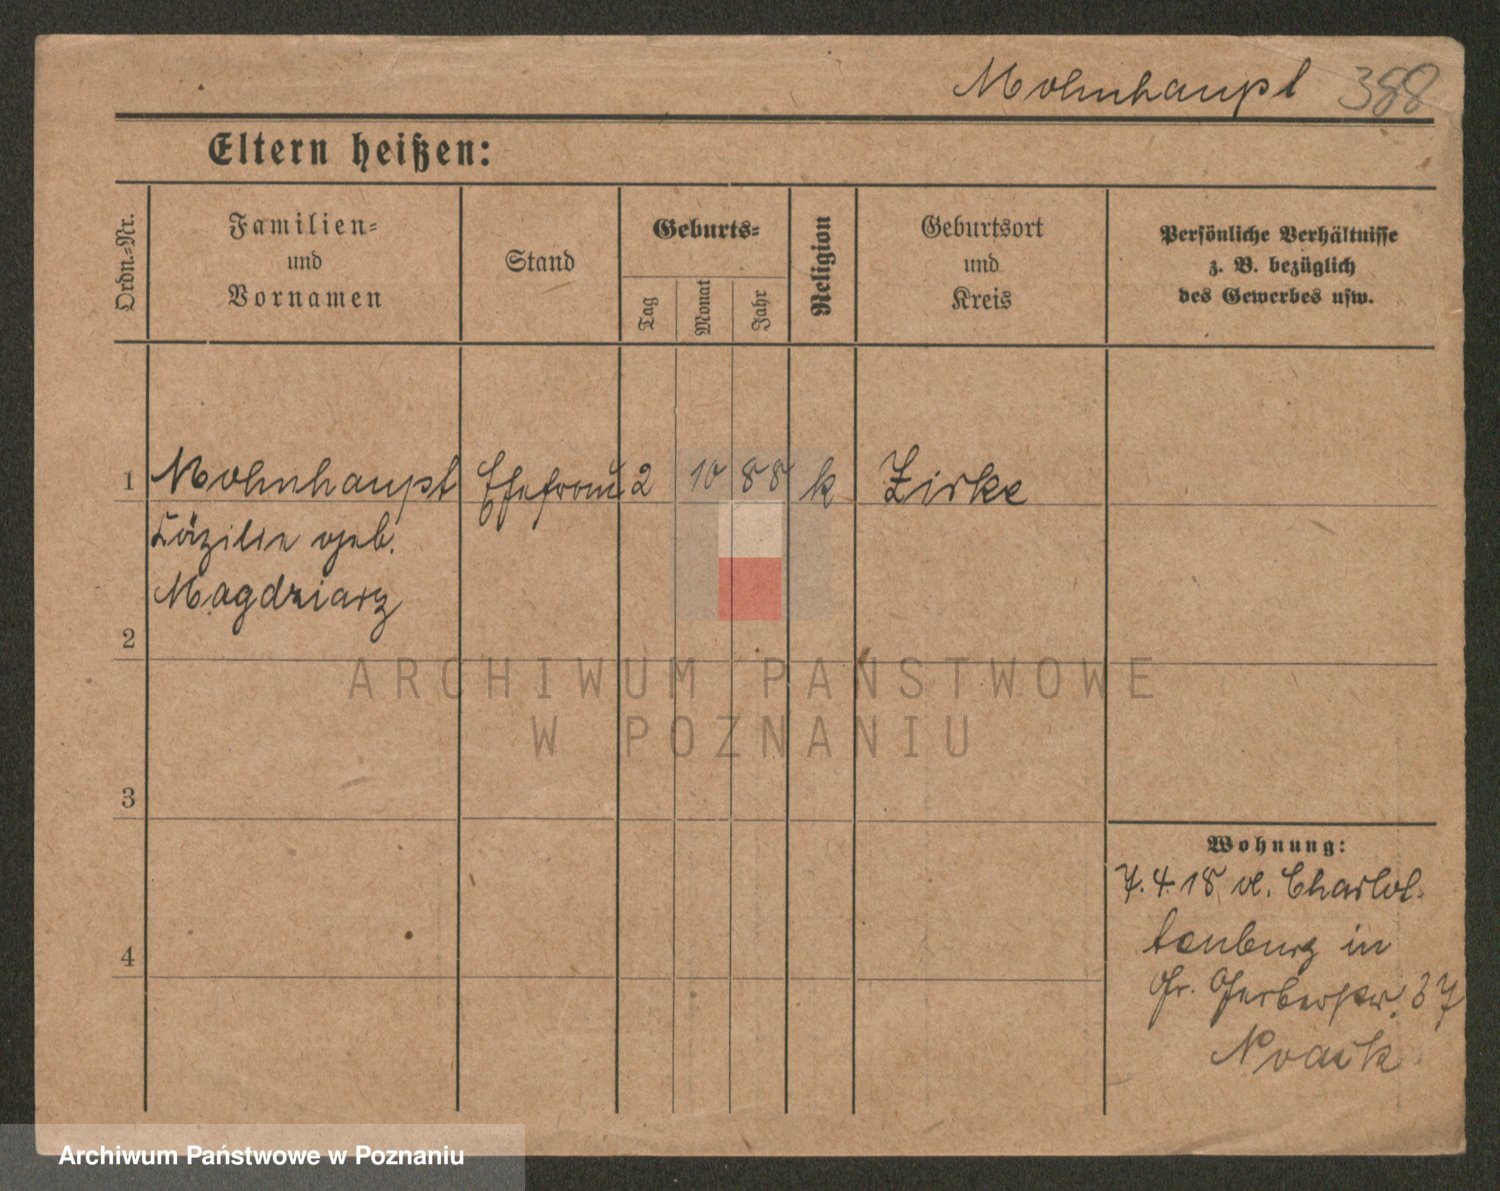 Mohnhaupt 388
Eltern heißen:
Ordn.-Nr.
Familien-
und
Vornamen
Stand
Geburts-
Tag
Monat
Jahr
Religion
Geburtsort
und
Kreis
Persönliche Verhältnisse
z. B. bezüglich
des Gewerbes usw.
1 Mohnhaupt Ehefrau 2 10 88 k Zirke
Cäzilie geb.
Magdziarz
2
3
4
Wohnung:
7.4.18 vl. Charlot-
tenburg in
Gr. Gerberstr. 37
Noack
ARCHIWUM PAŃSTWOWE
W POZNANIU
Archiwum Państwowe w Poznaniu